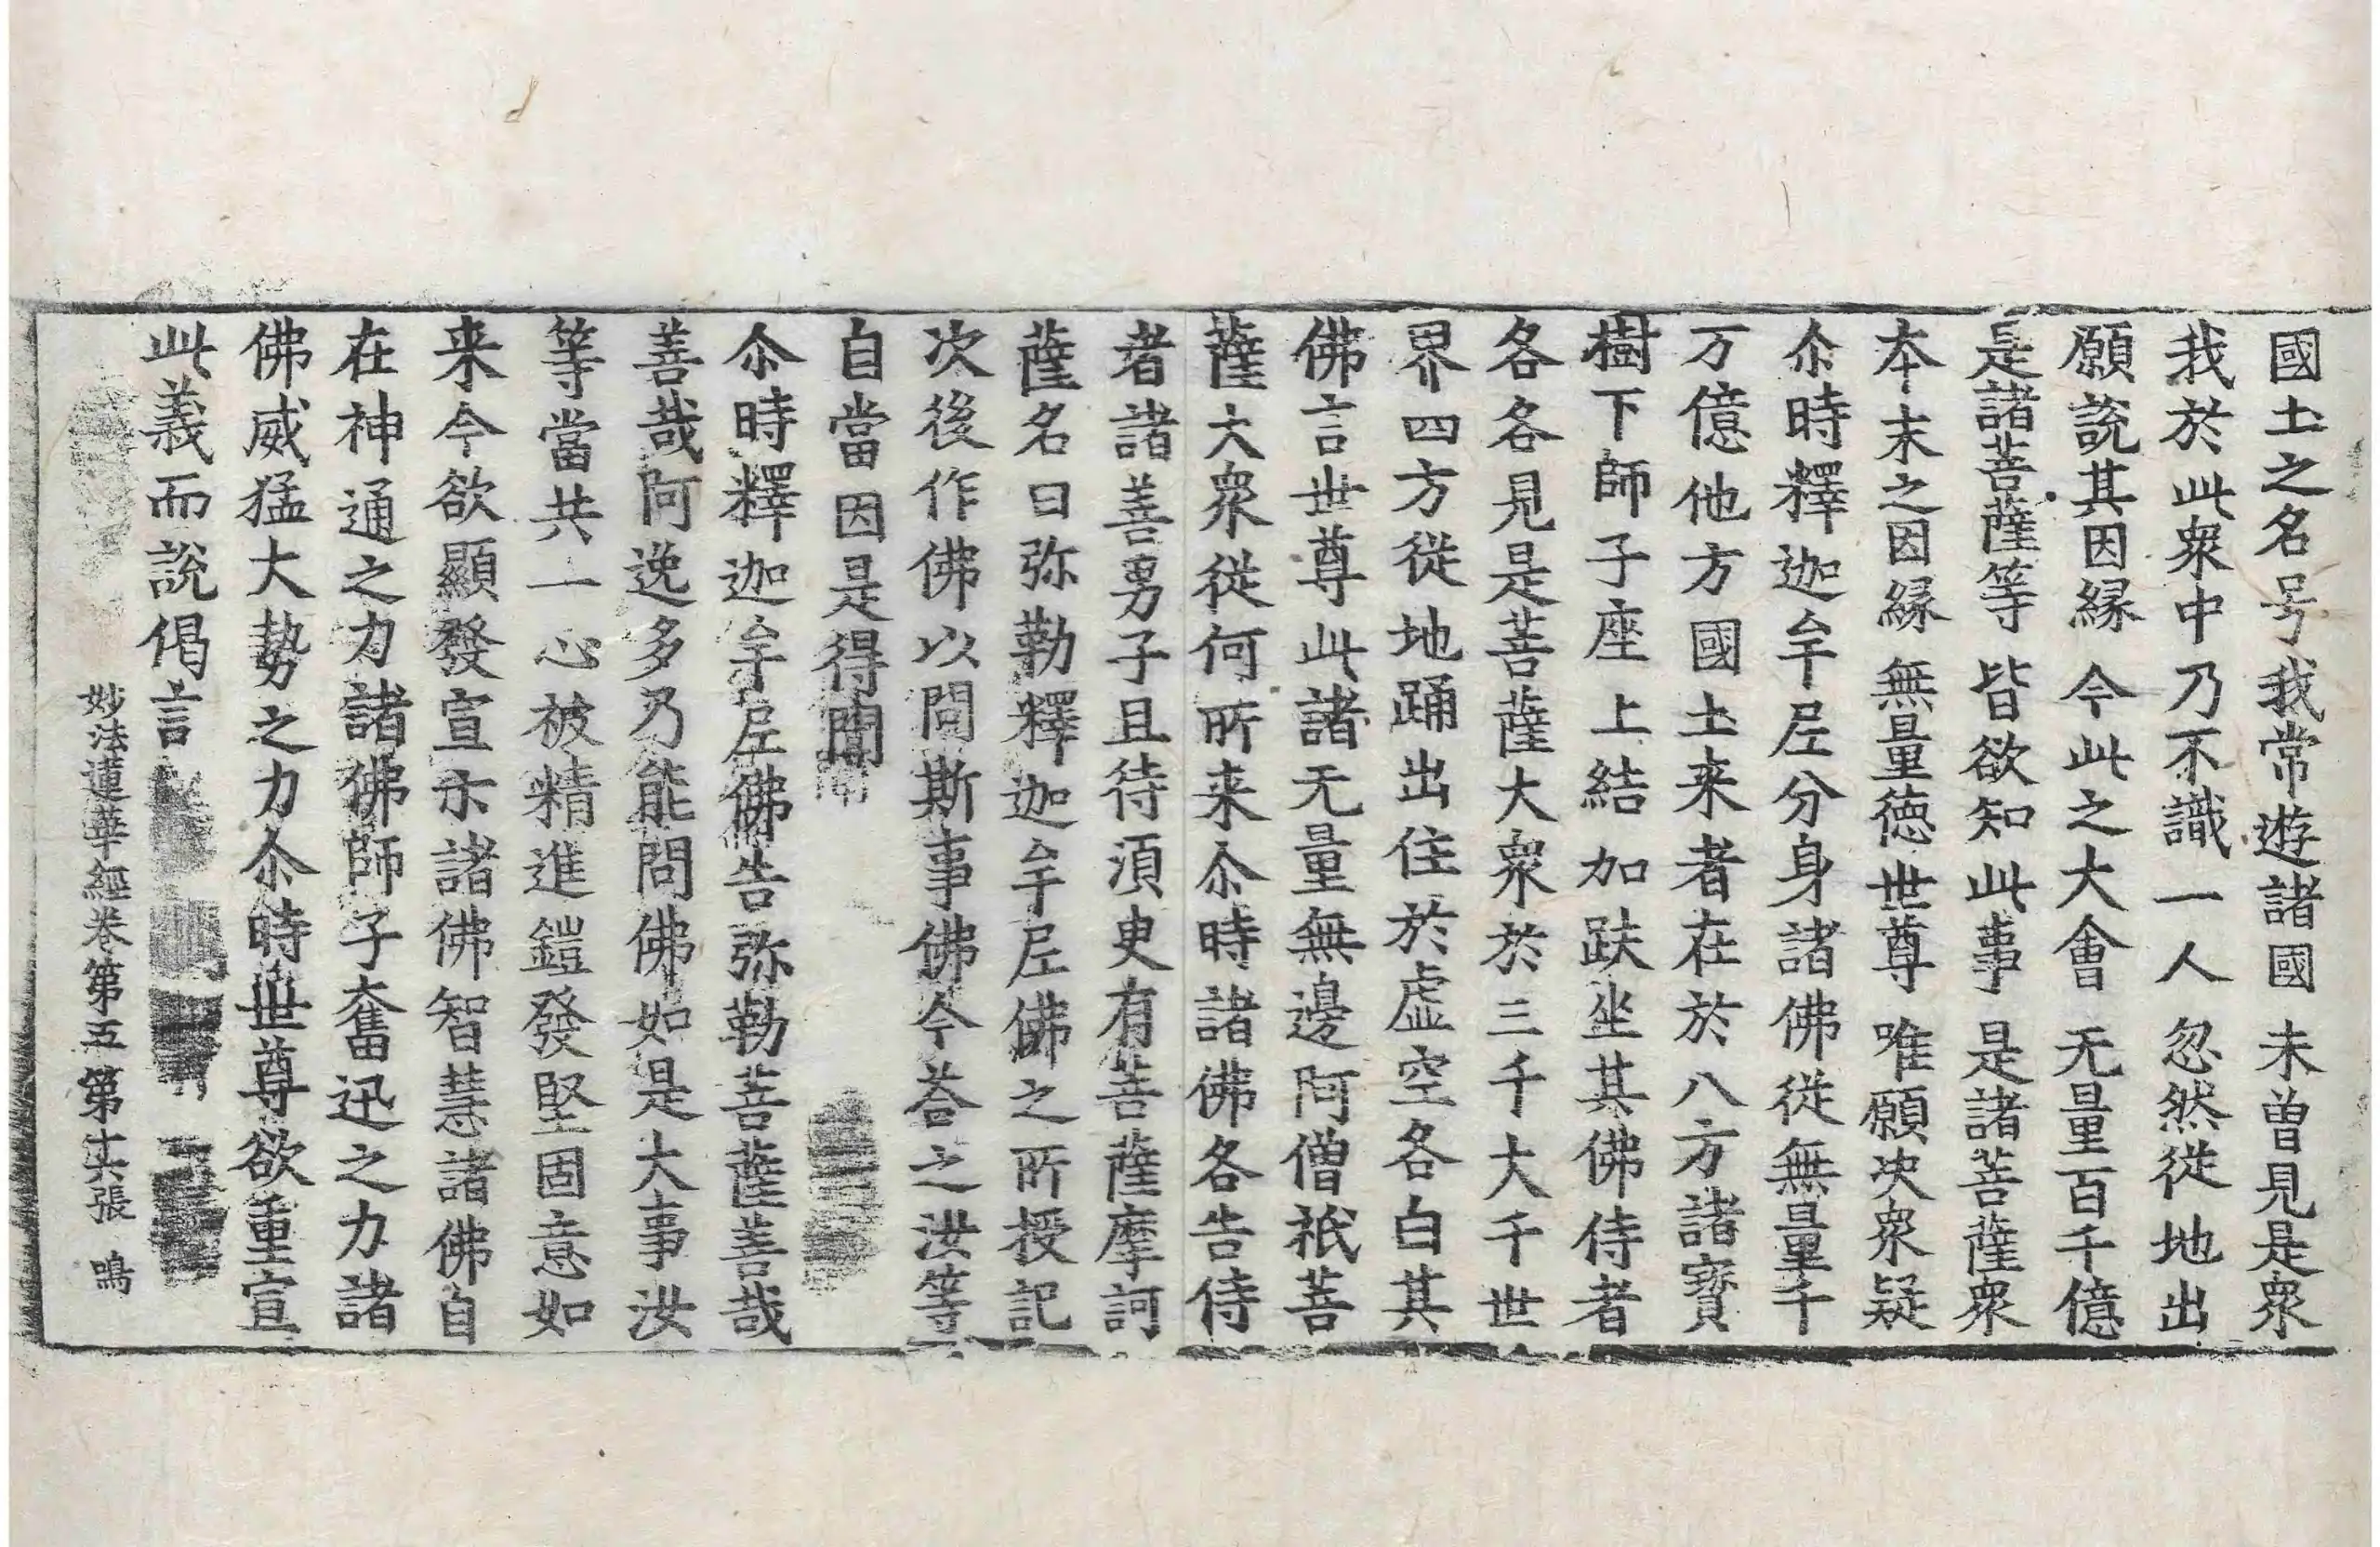 國土之名号 我常遊諸國 未曽見是衆
我於此衆中 乃不識一人 忽然從地出
願說其因縁 今此之大會 无量百千億
是諸菩薩等 皆欲知此事 是諸菩薩衆
本末之因縁 無量徳世尊 唯願决衆疑
尒時釋迦牟尼分身諸佛從無量千
万億他方國土来者在於八方諸寳
樹下師子座上結加趺坐其佛侍者
各各見是菩薩大衆於三千大千世
界四方從地踊出住於虚空各白其
佛言世尊此諸无量無邊阿僧祇菩
薩大衆從何所来尒時諸佛各告侍
者諸善男子且待須臾有菩薩摩訶
薩名曰弥勒釋迦牟尼佛之所授記
次後作佛以問斯事佛今荅之汝等
自當因是得聞
尒時釋迦牟尼佛告弥勒菩薩善哉
善哉阿逸多乃能問佛如是大事汝
等當共一心被精進鎧發堅固意如
来今欲顯發宣示諸佛智慧諸佛自
在神通之力諸佛師子奮迅之力諸
佛威猛大勢之力尒時世尊欲重宣
此義而說偈言
妙法蓮華經卷第五 第 張